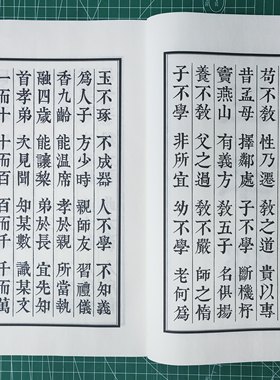 苟不敎 性乃遷 敎之道 貴以專
昔孟母 擇鄰處 子不學 斷機杼
竇燕山 有義方 敎五子 名俱揚
養不敎 父之過 敎不嚴 師之惰
子不學 非所宜 幼不學 老何爲
玉不琢 不成器 人不學 不知義
爲人子 方少時 親師友 習禮儀
香九齡 能溫席 孝於親 所當執
融四歲 能讓梨 弟於長 宜先知
首孝弟 次見聞 知某數 識某文
一而十 十而百 百而千 千而萬